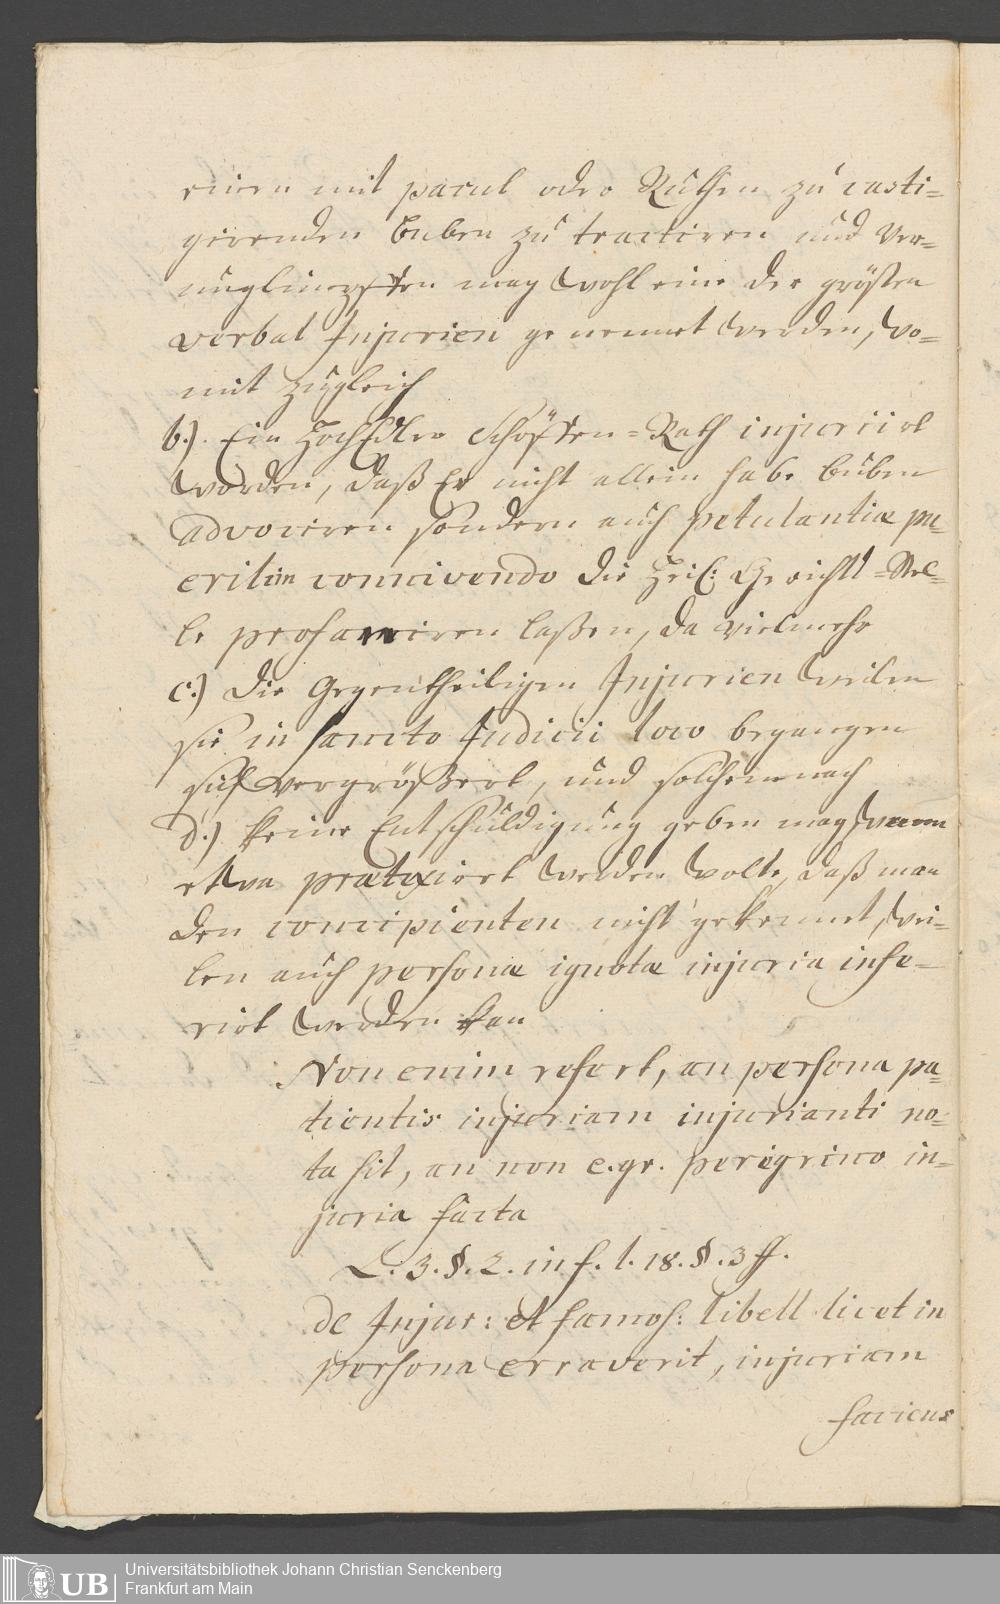 einen mit pacul oder Ruthen zu casti=
girenden Buben zu tractiren und ver=
unglimpfen mag wohl eine der grösten
verbal Injurien genennet werden, wo=
mit zugleich
b.). Ein HochEdler Schöffen=Rath injuriirt
worden, daß Er nicht allein habe Buben
advociren sondern auch petulantiæ pu=
erili connivendo die Heil: Gerichts=Stel=
le prophaniren laßen, da vielmehr
c.) die Gegentheiligen Injurien weilen
sie in sancto Judicii loco begangen
sich vergrößert, und solchemnach
d.) keine Entschuldigung geben mag wann
etwa prætexirt werden wolte, daß man
den concipienten nicht gekennet, wei=
len auch personæ ignotæ injuria infe=
rirt werden kan
Non enim refert, an persona pa=
tientis injuriam injurianti no=
ta sit, an non e.gr. peregrino in=
juria facta
L. 3. §. 2. in f. l. 18. §. 3 ff.
de Injur: et famos: libell licet in
persona erraverit, injuriam
faciens
Universitätsbibliothek Johann Christian Senckenberg
Frankfurt am Main
UB